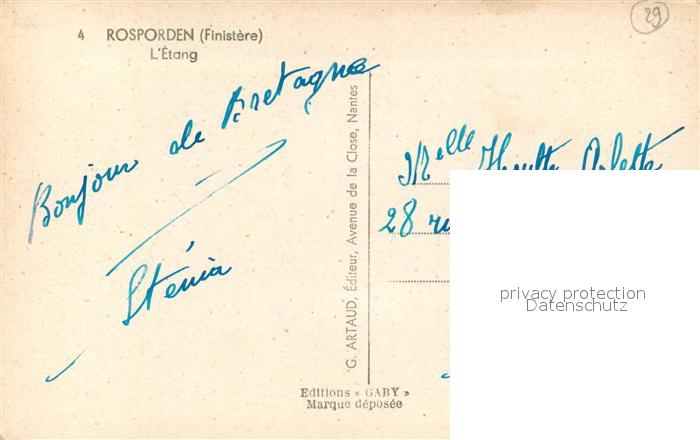 29
4 ROSPORDEN (Finistère)
L'Étang
Bonjour de Bretagne
Sténia
G. ARTAUD, Éditeur, Avenue de la Close, Nantes
Editions « GABY »
Marque déposée
Melle Arlette
28
privacy protection
Datenschutz